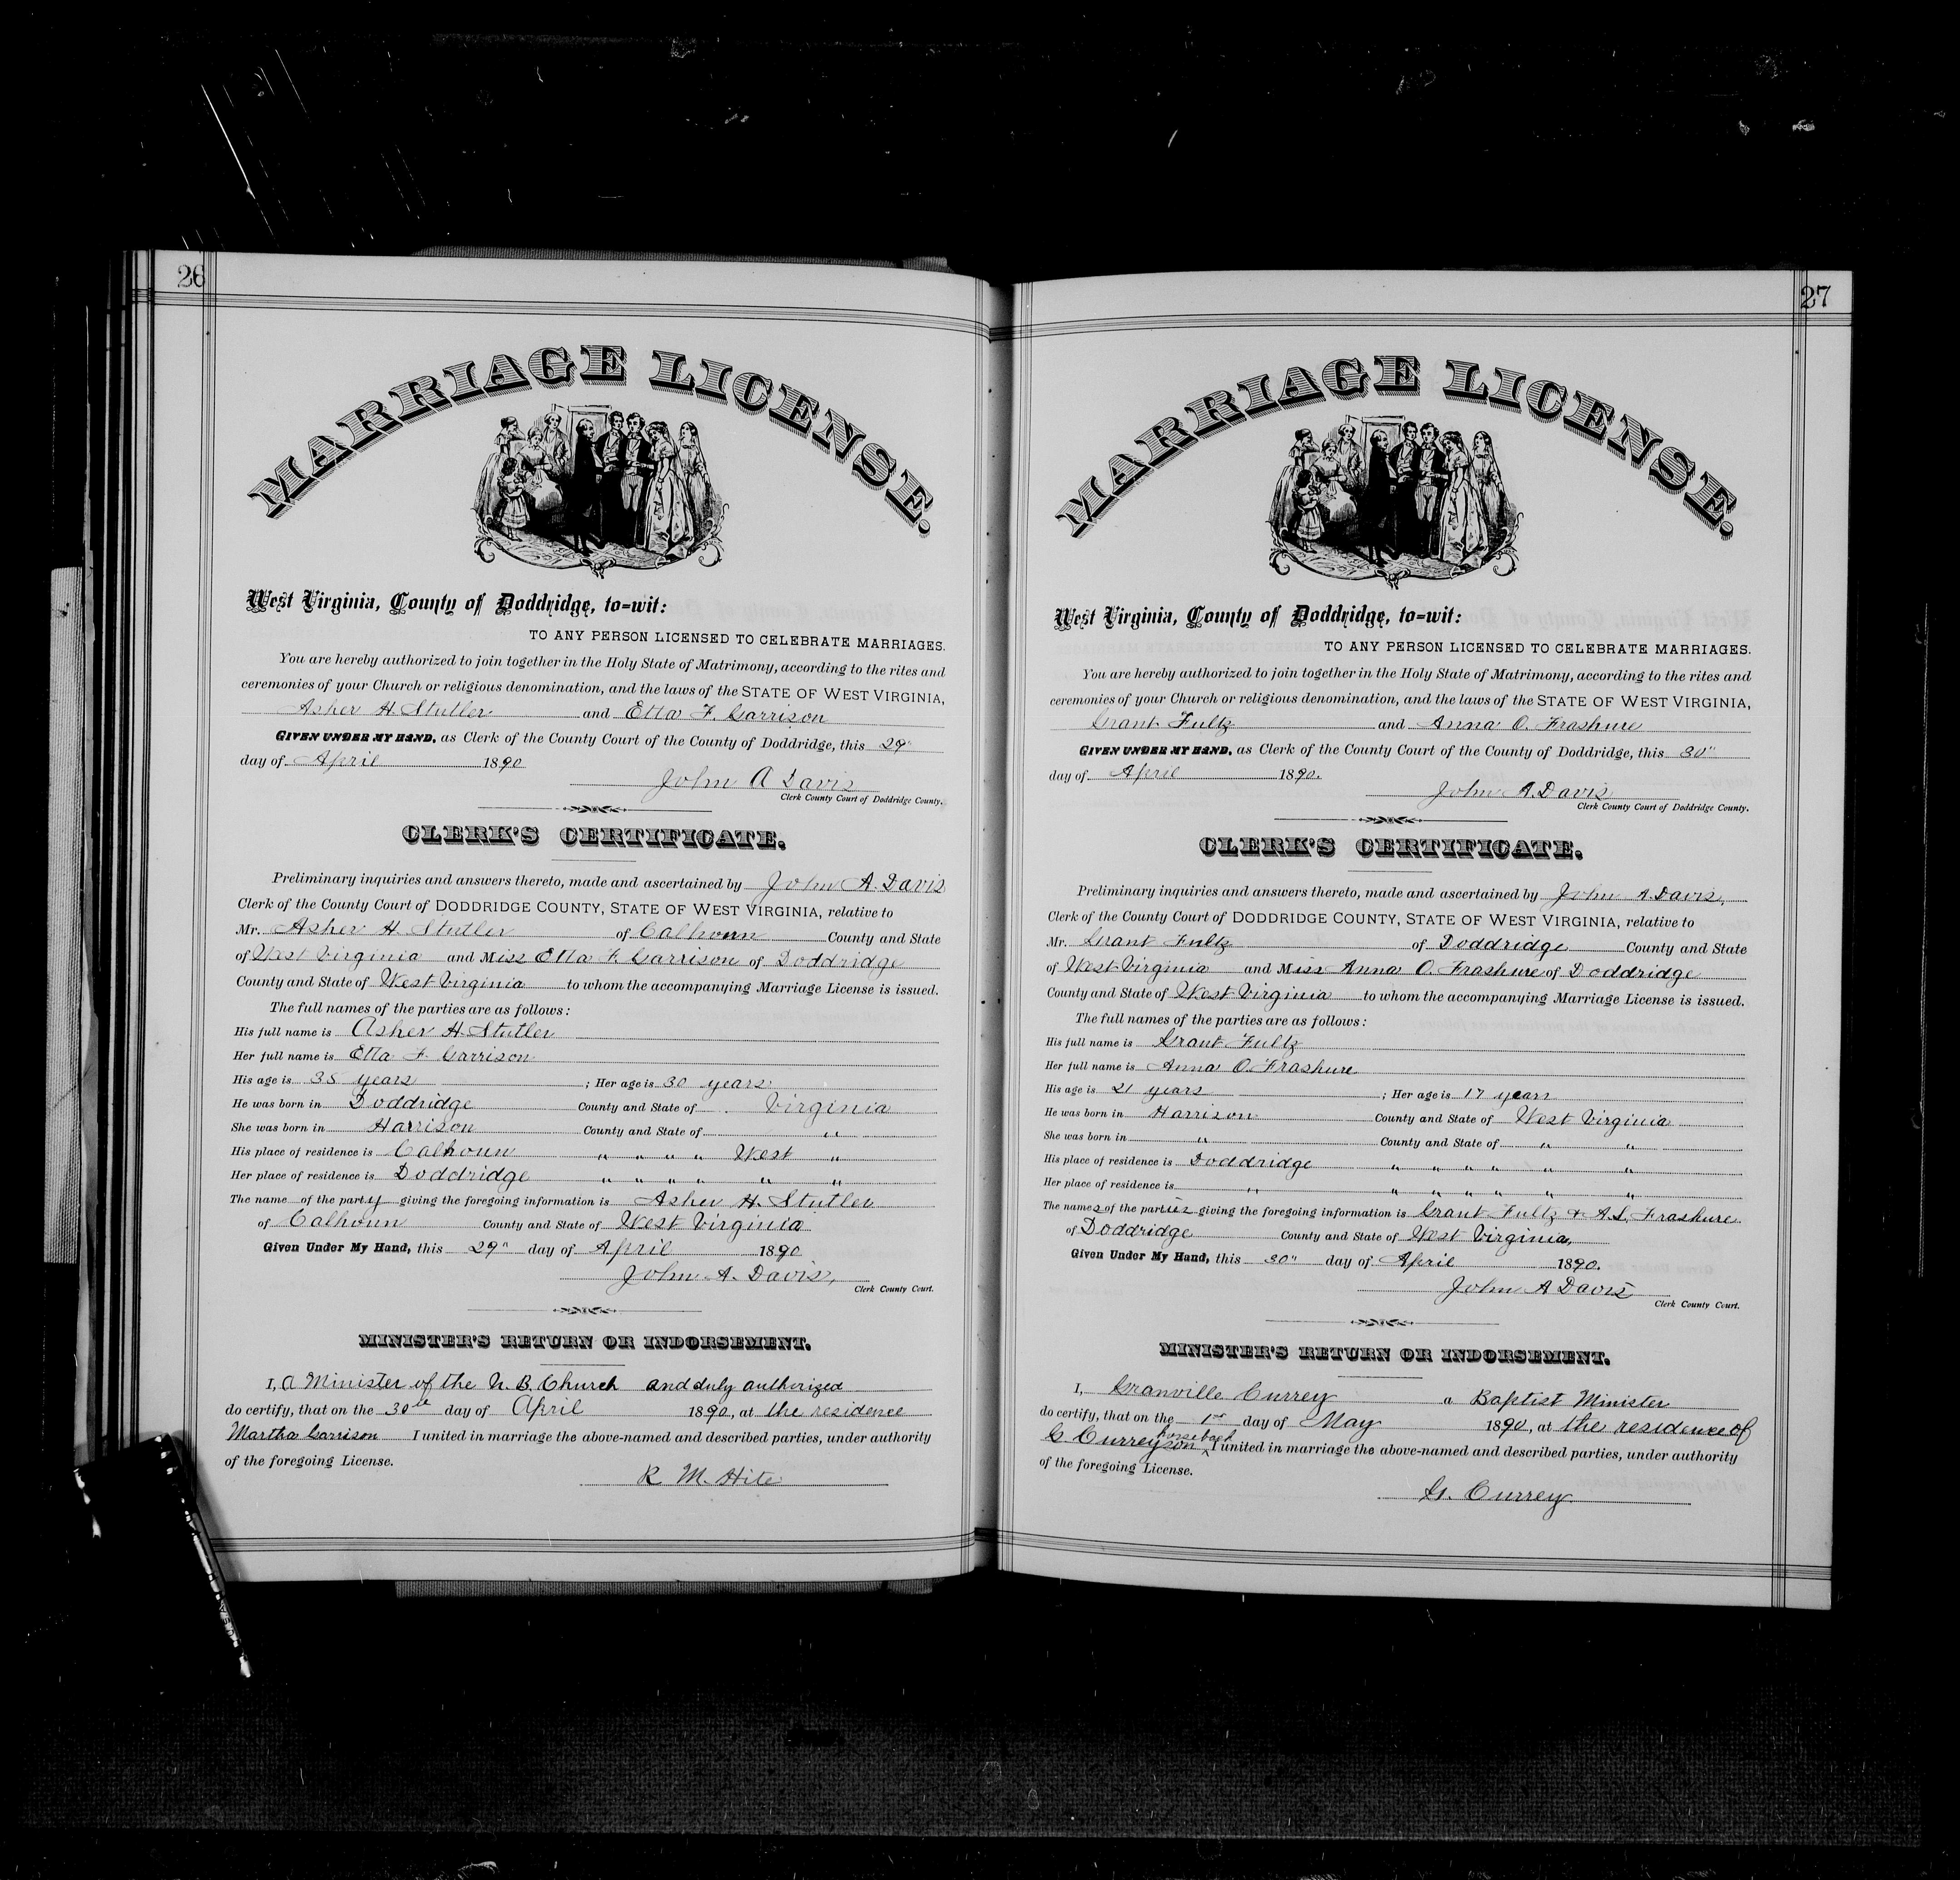 26
MARRIAGE LICENSE.
West Virginia, County of Doddridge, to=wit:
TO ANY PERSON LICENSED TO CELEBRATE MARRIAGES.
You are hereby authorized to join together in the Holy State of Matrimony, according to the rites and
ceremonies of your Church or religious denomination, and the laws of the STATE OF WEST VIRGINIA,
Asher H. Stutler and Etta F. Garrison
GIVEN UNDER MY HAND, as Clerk of the County Court of the County of Doddridge, this 29"
day of April 1890
John A Davis
Clerk County Court of Doddridge County.
CLERK'S CERTIFICATE.
Preliminary inquiries and answers thereto, made and ascertained by John A. Davis
Clerk of the County Court of DODDRIDGE COUNTY, STATE OF WEST VIRGINIA, relative to
Mr. Asher H. Stutler of Calhoun County and State
of West Virginia and Miss Etta F. Garrison of Doddridge
County and State of West Virginia to whom the accompanying Marriage License is issued.
The full names of the parties are as follows:
His full name is Asher H. Stutler
Her full name is Etta F. Garrison
His age is 35 years ; Her age is 30 years
He was born in Doddridge County and State of Virginia
She was born in Harrison County and State of "
His place of residence is Calhoun " " " " West "
Her place of residence is Doddridge " " " " " "
The name of the party giving the foregoing information is Asher H. Stutler
of Calhoun County and State of West Virginia
Given Under My Hand, this 29" day of April 1890
John A. Davis,
Clerk County Court.
MINISTER'S RETURN OR INDORSEMENT.
I, a Minister of the U. B. Church and duly authorized
do certify, that on the 30th day of April 1890, at the residence
Martha Garrison I united in marriage the above-named and described parties, under authority
of the foregoing License.
R M. Hite
27
MARRIAGE LICENSE.
West Virginia, County of Doddridge, to=wit:
TO ANY PERSON LICENSED TO CELEBRATE MARRIAGES.
You are hereby authorized to join together in the Holy State of Matrimony, according to the rites and
ceremonies of your Church or religious denomination, and the laws of the STATE OF WEST VIRGINIA,
Grant Fultz and Anna O. Frashure
GIVEN UNDER MY HAND, as Clerk of the County Court of the County of Doddridge, this 30"
day of April 1890.
John A. Davis
Clerk County Court of Doddridge County.
CLERK'S CERTIFICATE.
Preliminary inquiries and answers thereto, made and ascertained by John A. Davis,
Clerk of the County Court of DODDRIDGE COUNTY, STATE OF WEST VIRGINIA, relative to
Mr. Grant Fultz of Doddridge County and State
of West Virginia and Miss Anna O. Frashure of Doddridge
County and State of West Virginia to whom the accompanying Marriage License is issued.
The full names of the parties are as follows:
His full name is Grant Fultz
Her full name is Anna O. Frashure
His age is 21 years ; Her age is 17 years
He was born in Harrison County and State of West Virginia
She was born in " County and State of " "
His place of residence is Doddridge " " " " " "
Her place of residence is " " " " " " "
The names of the parties giving the foregoing information is Grant Fultz & A.S. Frashure
of Doddridge County and State of West Virginia,
Given Under My Hand, this 30" day of April 1890.
John A Davis
Clerk County Court.
MINISTER'S RETURN OR INDORSEMENT.
I, Granville Currey a Baptist Minister
do certify, that on the 1st day of May 1890, at the residence of
horseback
G. Currey on ^ I united in marriage the above-named and described parties, under authority
of the foregoing License.
G. Currey